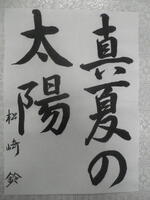 真夏の
太陽
松崎鈴